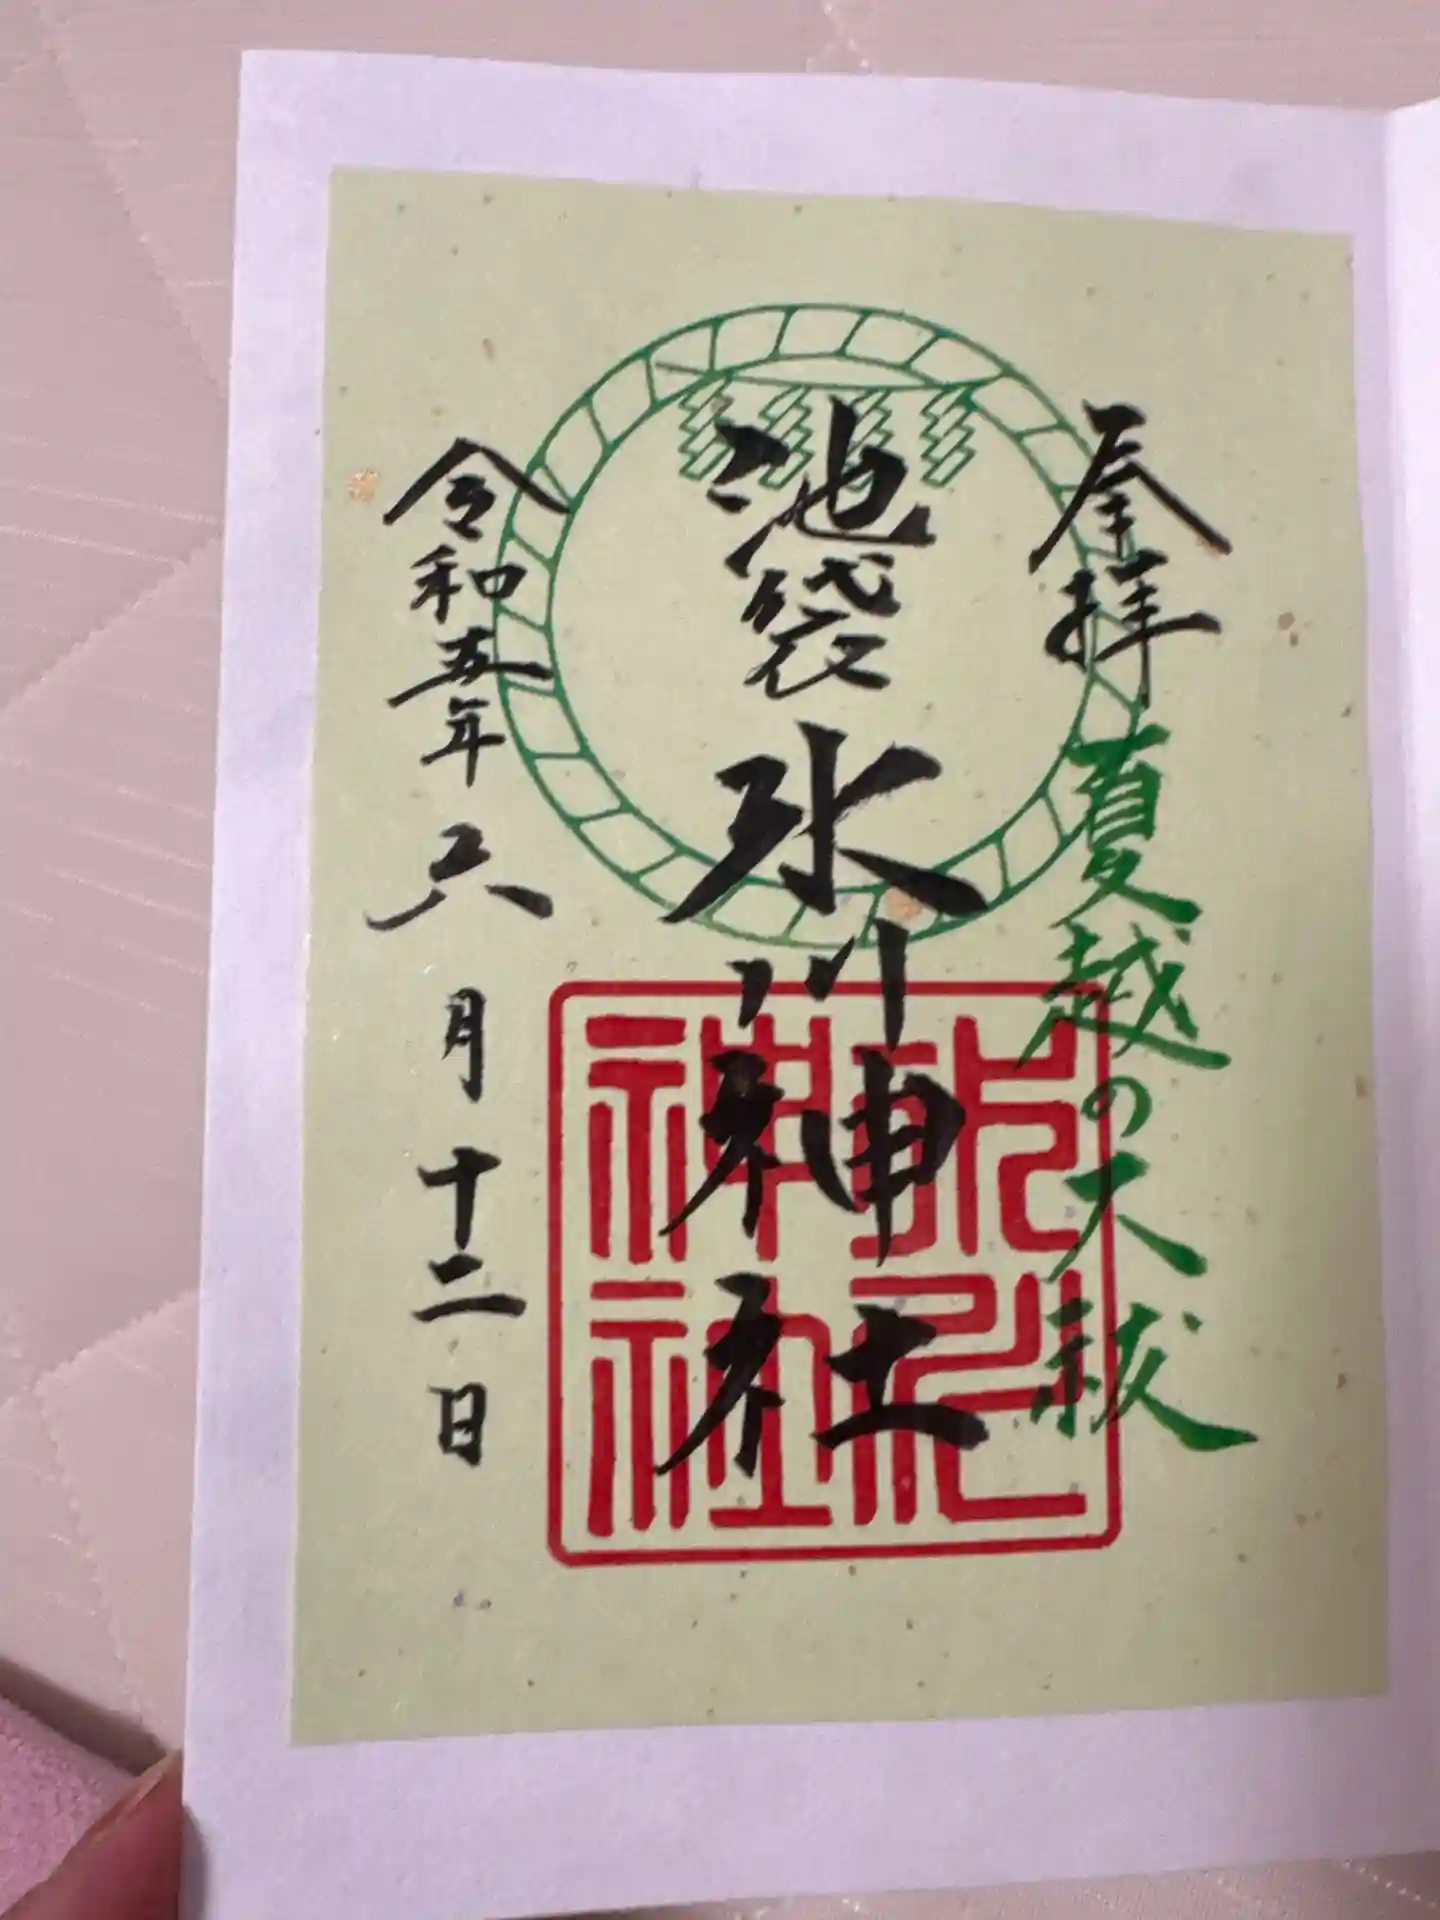 奉拝
夏越の大祓
池袋氷川神社
令和五年六月十二日
氷川神社